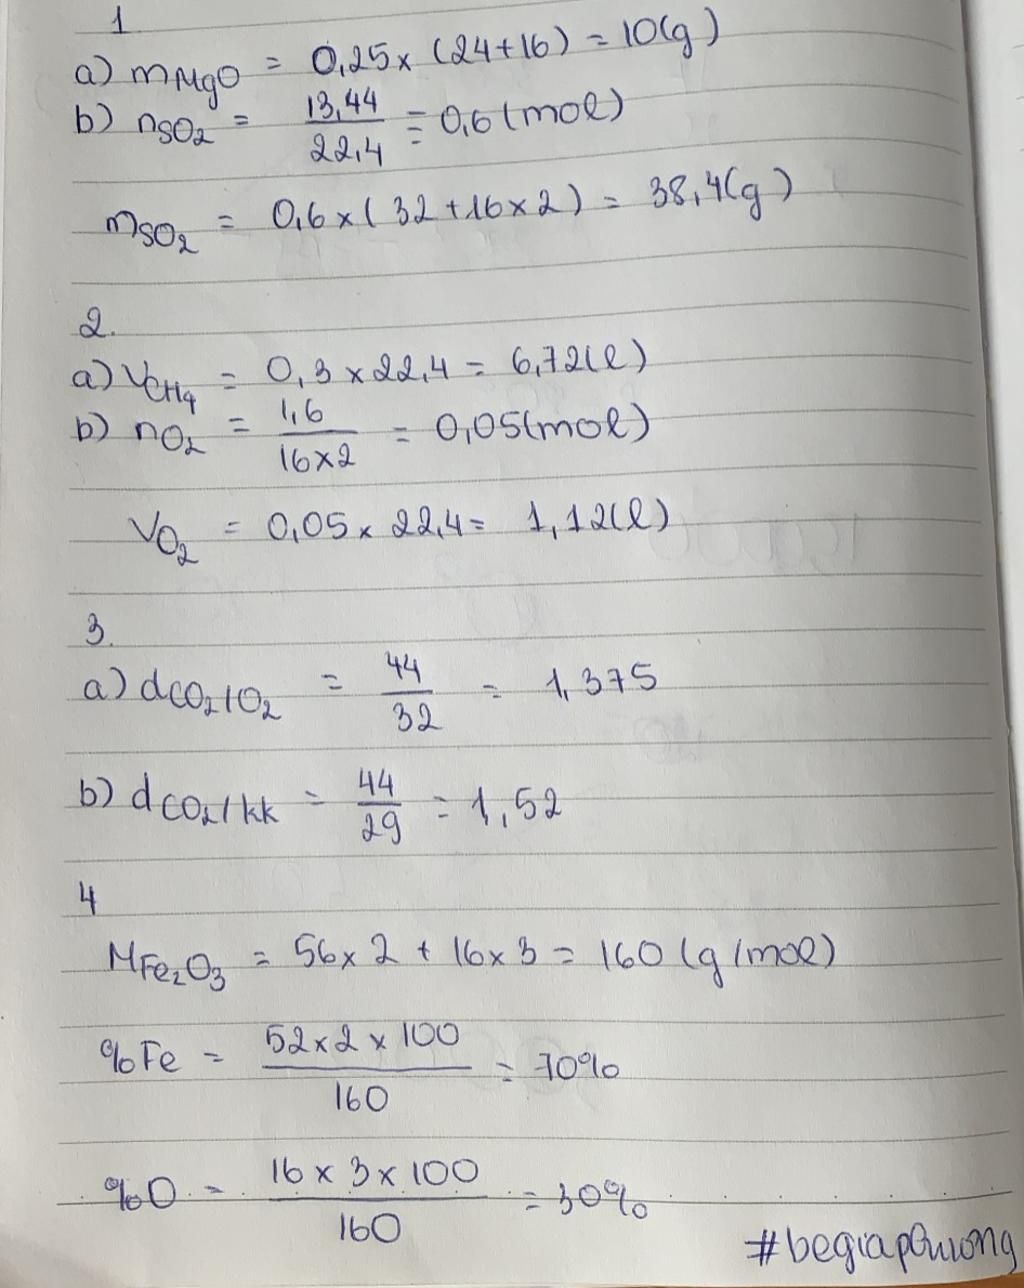 1
a) mMgO = 0,25 x (24+16) = 10(g)
b) nSO2 = 13,44 / 22,4 = 0,6 (mol)
mSO2 = 0,6 x (32+16x2) = 38,4(g)
2.
a) VCH4 = 0,3 x 22,4 = 6,72(l)
b) nO2 = 1,6 / 16x2 = 0,05(mol)
VO2 = 0,05 x 22,4 = 1,12(l)
3.
a) dCO2/O2 = 44 / 32 = 1,375
b) dCO2/kk = 44 / 29 = 1,52
4
MFe2O3 = 56x2 + 16x3 = 160 (g/mol)
%Fe = 52x2x100 / 160 = 70%
%O = 16x3x100 / 160 = 30%
#begiaphuong